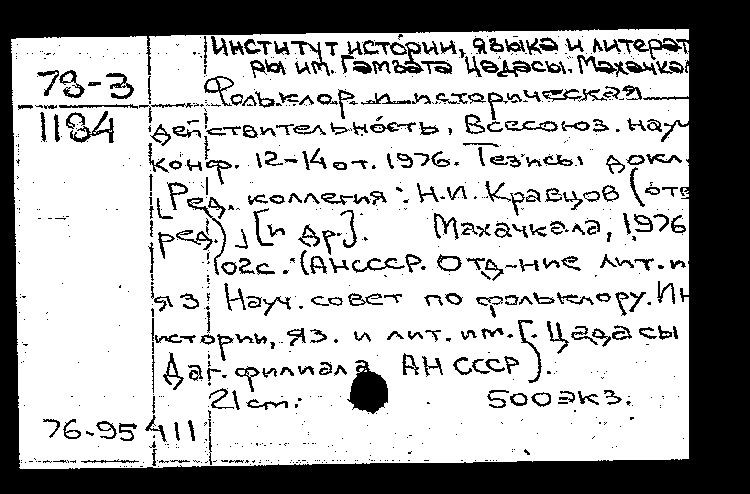 институт истории, языка и литерат
ры им. Гамзата Цадасы. Махачкал
78-3
Фольклор и историческая
1184
действительность, Всесоюз. науч
конф. 12-14 от. 1976. Тезисы докл.
[Ред. коллегия: Н.И. Кравцов (отв
ред.)] [и др.]. Махачкала, 1976
102с. (АНСССР. Отд-ние лит. и
яз. Науч. совет по фольклору. Ин
истории, яз. и лит. им. Г. Цадасы
Даг. филиала АН СССР).
21 cm. 500экз.
76-95411